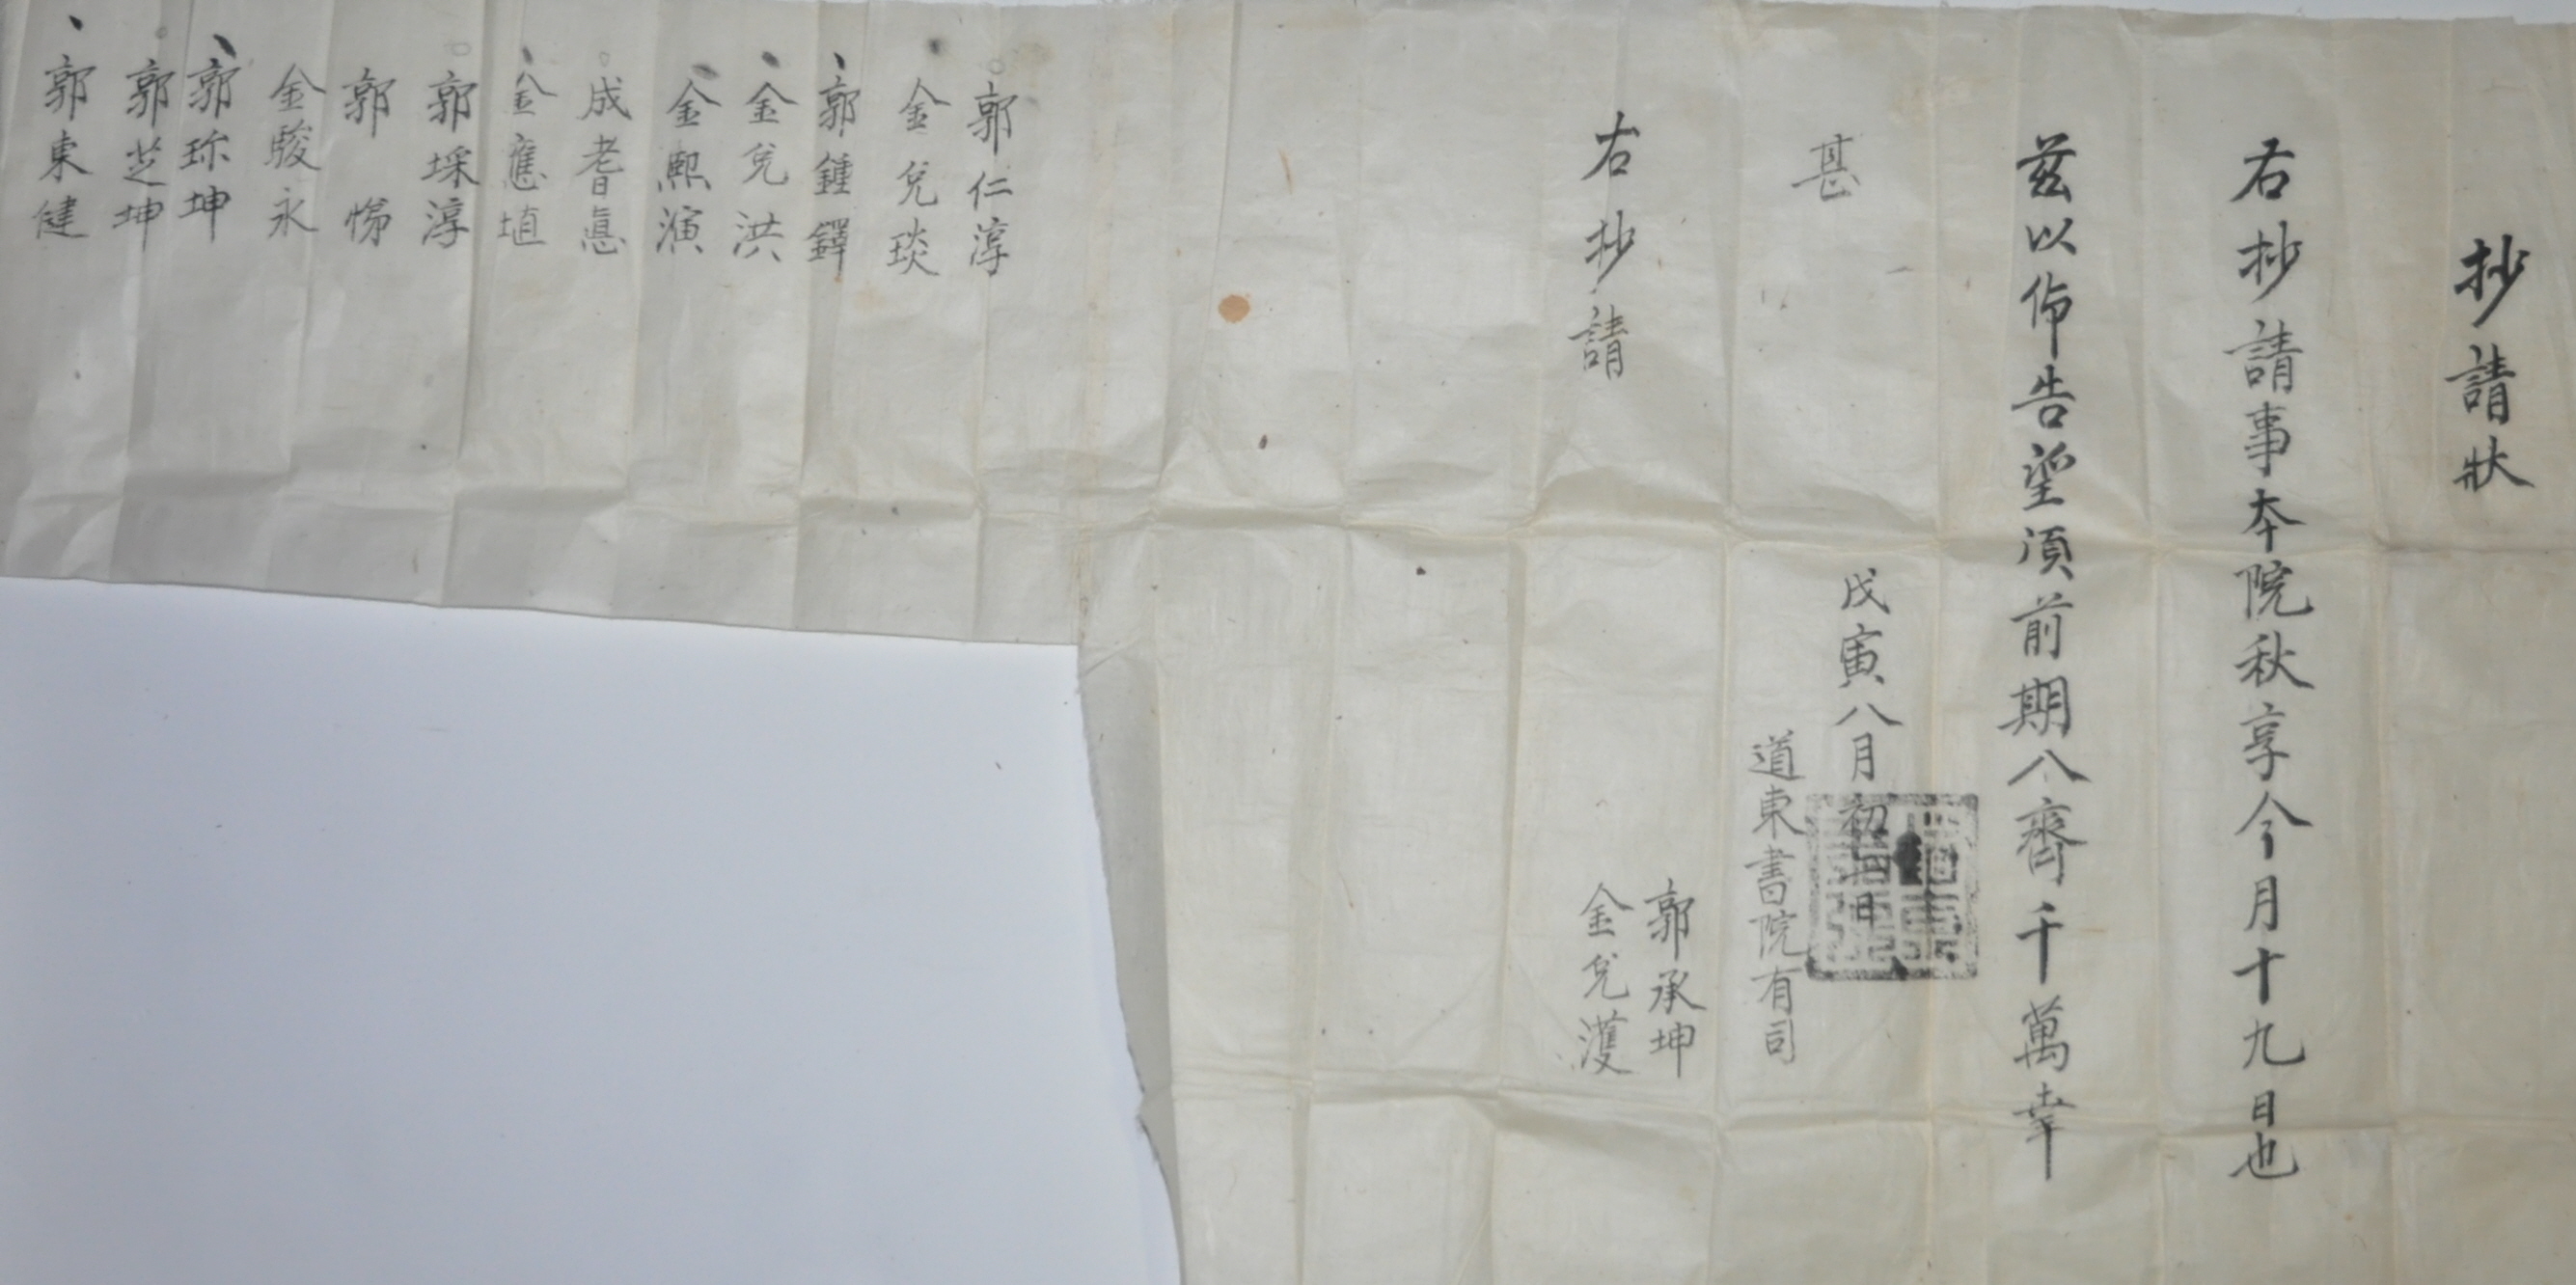 抄請狀
右抄請事本院秋享今月十九日也
茲以佈告望須前期八齊千萬幸
甚
戊寅八月初四日
道東書院有司
郭承坤
金兌濩
右抄請
郭仁淳
金兌琰
郭鍾鐸
金兌洪
金熙演
成耆悳
金應埴
郭埰淳
郭 悌
金駿永
郭珎坤
郭芝坤
郭東健